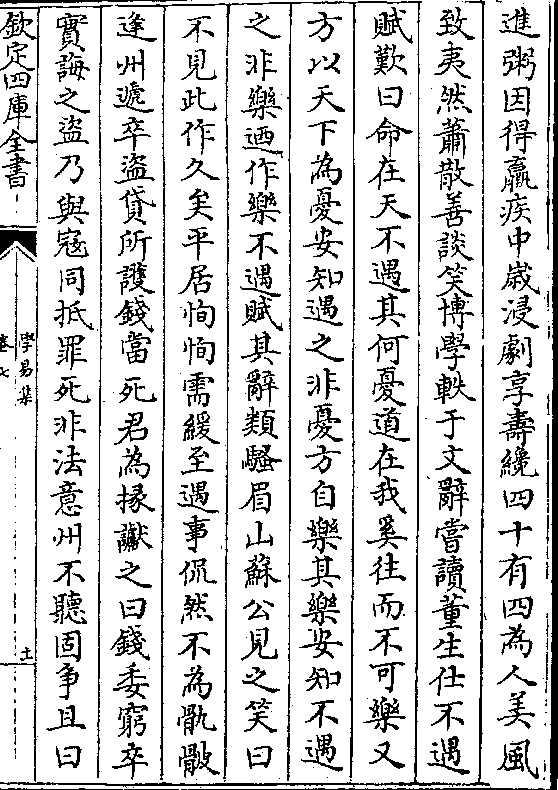 進粥因得羸疾中歲浸劇享壽纔四十有四為人美風
致夷然蕭散善談笑博學軼于文辭嘗讀董生仕不遇
賦歎曰命在天不遇其何憂道在我奚往而不可樂又
方以天下為憂安知遇之非憂方自樂其樂安知不遇
之非樂迺作樂不遇賦其辭類騷眉山蘇公見之笑曰
不見此作久矣平居恂恂需緩至遇事侃然不為骩骳
逢州遞卒盜貸所護錢當死君為掾讞之曰錢委窮卒
實誨之盜乃與寇同抵罪死非法意州不聽固争且曰
欽定四庫全書
學易集
卷七
土